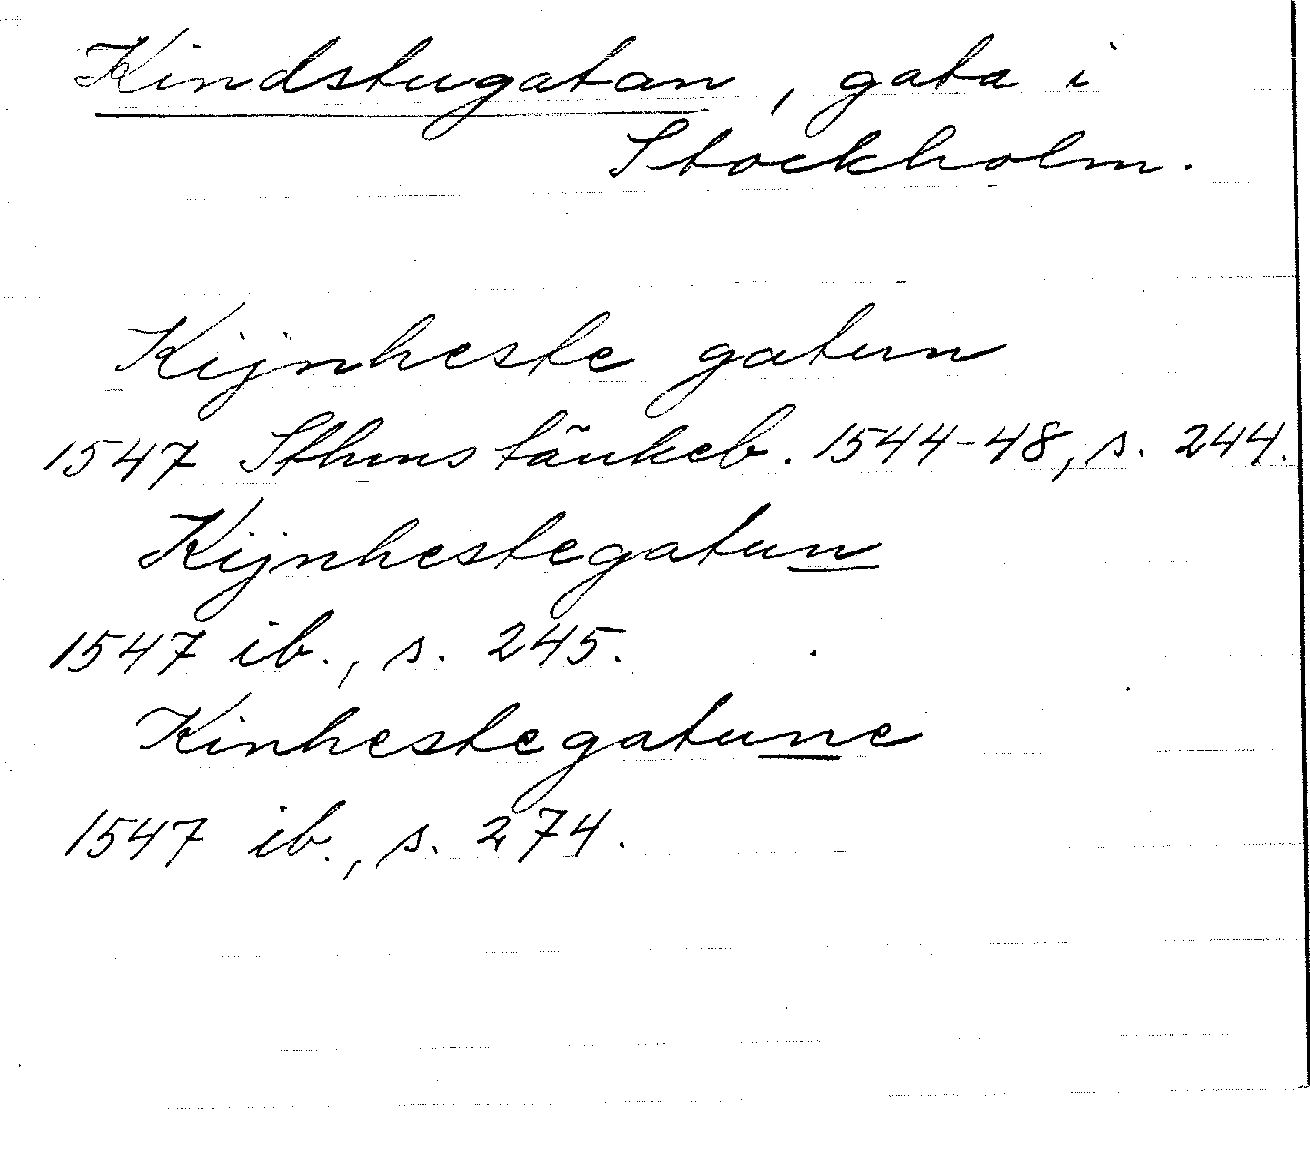 Kindstugatan, gata i
Stockholm.
Kijnheste gatun
1547 Sthms tänkeb. 1544-48, s. 244.
Kijnhestegatun
1547 ib., s. 245.
Kinhestegatune
1547 ib., s. 274.